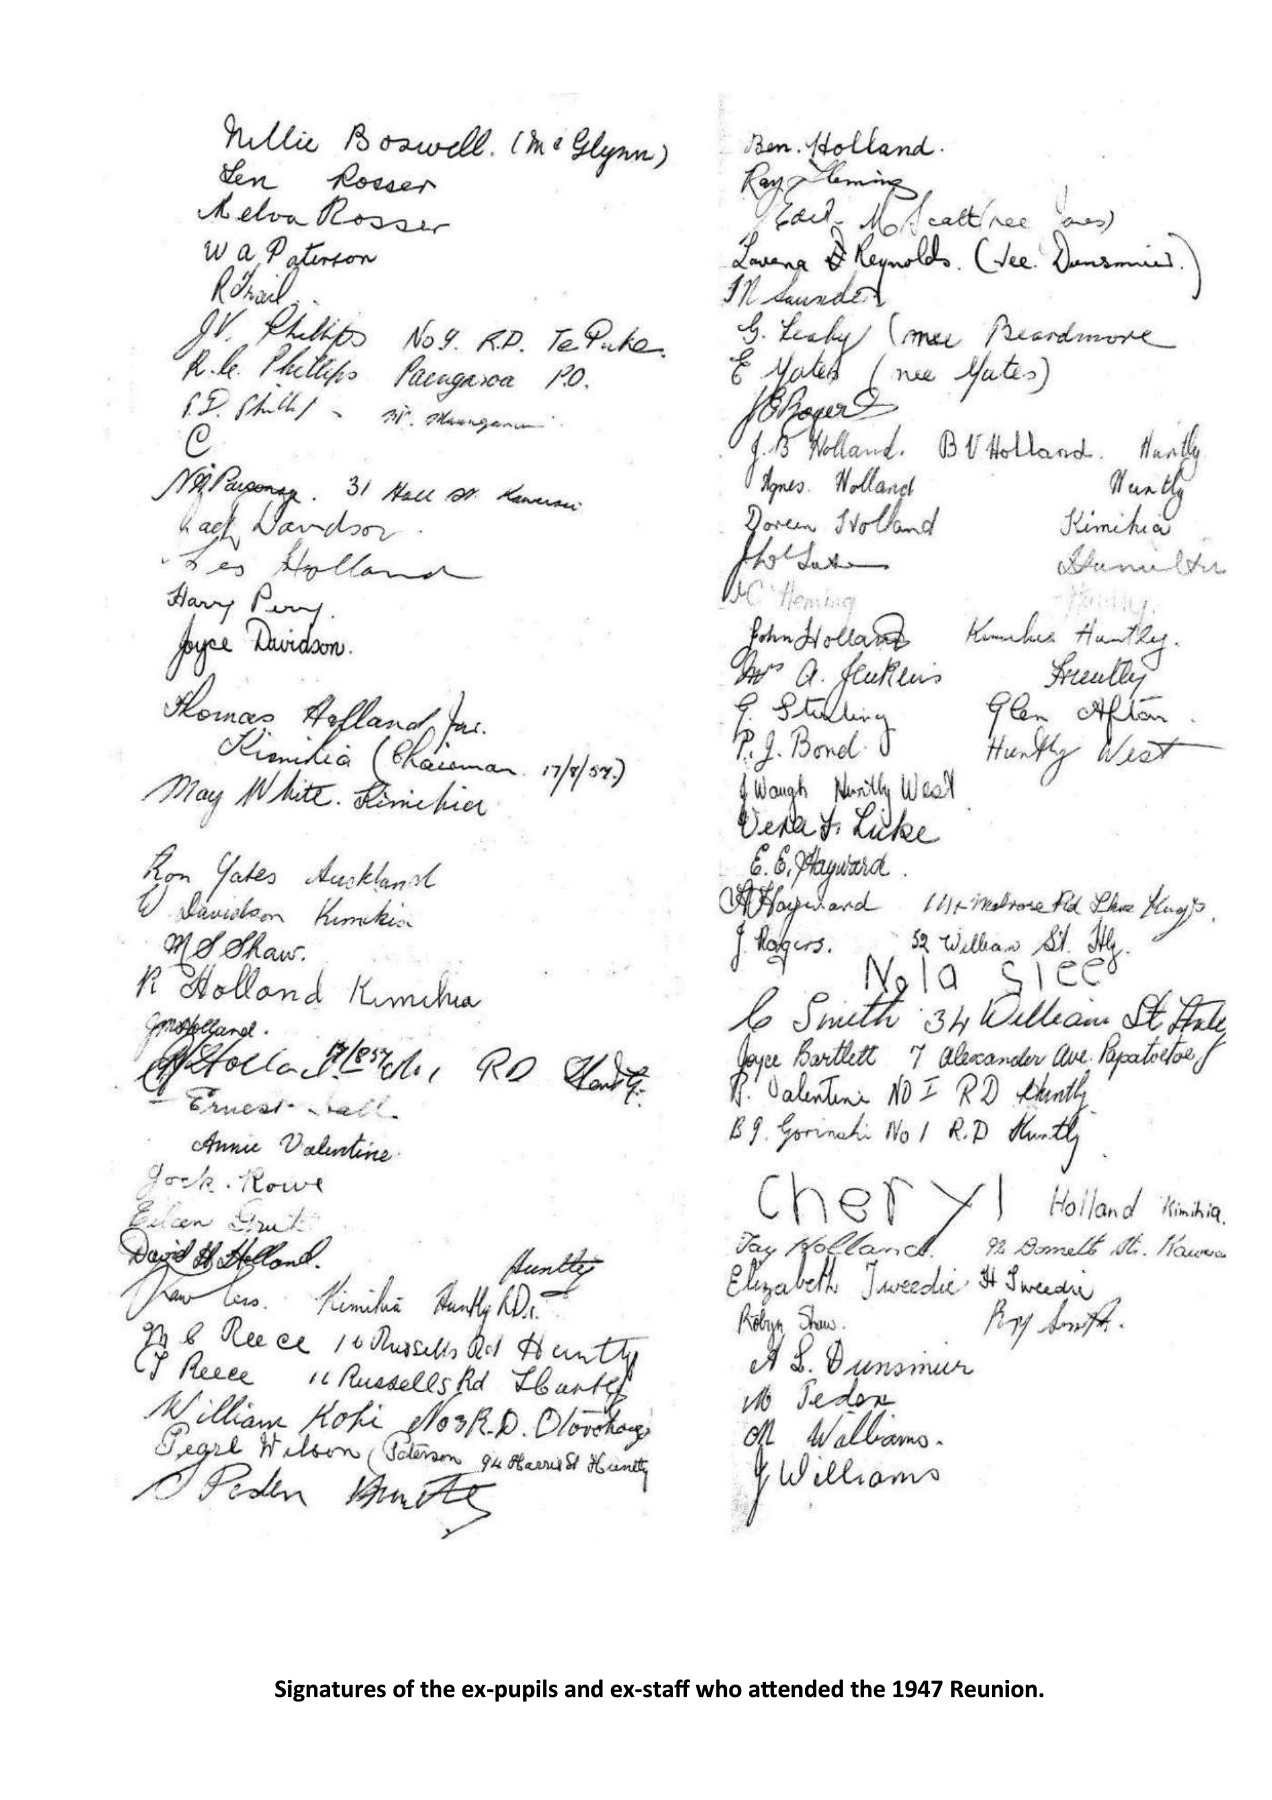 Nellie Boswell. (McGlynn)
Len Rosser
Melva Rosser
W A Paterson
R Trail.
J.V. Phillips No 9. R.D. Te Puke.
R.G. Phillips Paengaroa P.O.
P.D. Phill
C
Parsonage. 31 Hall St. Kawerau
Jack Davidson.
Les Holland
Harry Perry.
Joyce Davidson.
Thomas Holland Jnr.
Kimihia (Chairman 17/8/57.)
May White. Kimihia
Ron Yates Auckland
W Davidson Kimihia
M S Shaw.
R Holland Kimihia
Holland.
Holland 17/8/57 No 1 RD Huntly.
Ernest Hall
Annie Valentine.
Jock. Rowe
Eileen
David H Holland.
Huntly
Kimihia Huntly R.D.1.
M C Reece 16 Russells Rd Huntly
Reece 16 Russells Rd Huntly
William Kopi No 3 R.D.
Pearl Wilson (Paterson 94 Harris St Huntly
Peden Huntly
Ben. Holland.
Ray Fleming
(nee Jones)
Lavena Reynolds. (Nee. Dunsmuir.)
Saunders
G. Leahy (nee Beardmore
E Yates (nee Yates)
J E Roger
J. B Holland. B V Holland. Huntly
Agnes. Holland Huntly
Doreen Holland Kimihia
Hamilton
C Fleming Huntly.
John Holland Kimihia Huntly.
Mrs A. Jenkins Huntly
G. Stirling Glen Afton.
P. J. Bond. Huntly West
J Waugh Huntly West
Vera F. Luke
E. E. Hayward.
Hayward Melrose Rd Three Kings.
J. Rogers. 52 William St. Hly.
Nola Slee
C Smith 34 William St
Joyce Bartlett 7 Alexander Ave. Papatoetoe
R. Valentine NO I RD Huntly.
B J. Gorinski No 1 R.D Huntly
Cheryl Holland Kimihia.
Jay Holland. St. Kawerau
Elizabeth Tweedie H Tweedie
Robyn Shaw. Roy Smith.
A L. Dunsmuir
M Peden
M Williams.
J Williams
Signatures of the ex-pupils and ex-staff who attended the 1947 Reunion.